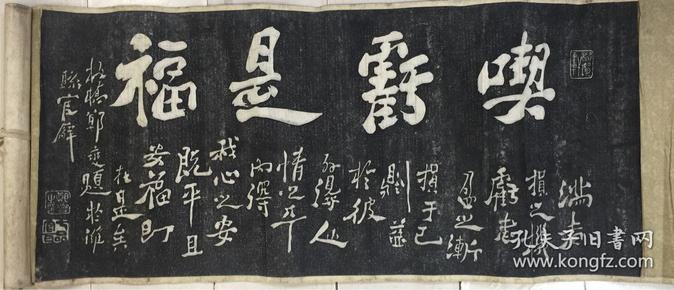 喫虧是福
满者
損之機
虧者
盈之漸
損于己
則益
於彼
外得人
情之平
内得
我心之安
既平且
安福即
在是矣
板橋鄭燮題於濰
縣官廨
孔夫子旧书网
www.kongfz.com